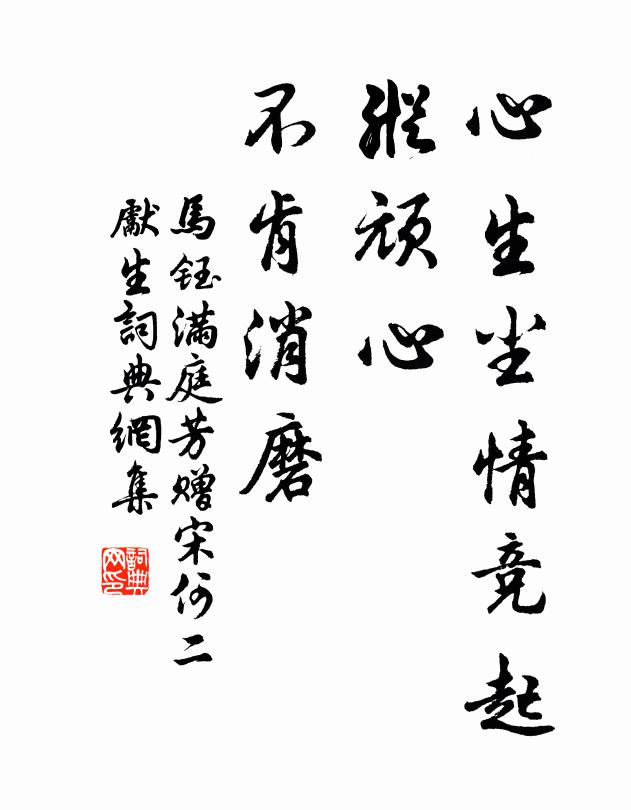 心生尘情竞起
縱頑心
不肯消磨
馬鈺滿庭芳赠宋何二
獻生詞典網集
詞典网印